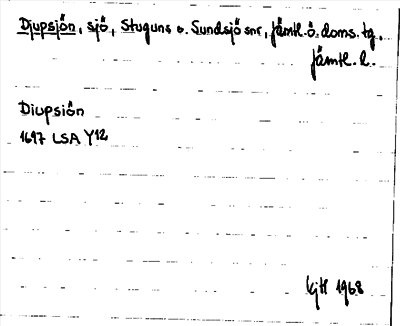 Djupsjön, sjö, Stuguns o. Sundsjö snr, Jämtl. ö. doms. tg.,
Jämtl. l.
Diupsiön
1697 LSA Y12
1968